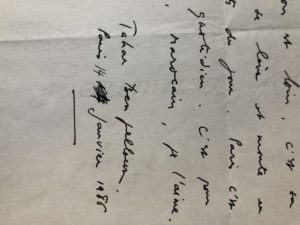 on est loin, c'est sa
de lève et monte en
du jour. Paris c'est
quotidien. C'est pour
marocain, je l'aime.
Tahar Ben Jelloun.
Paris 14 Janvier 1986